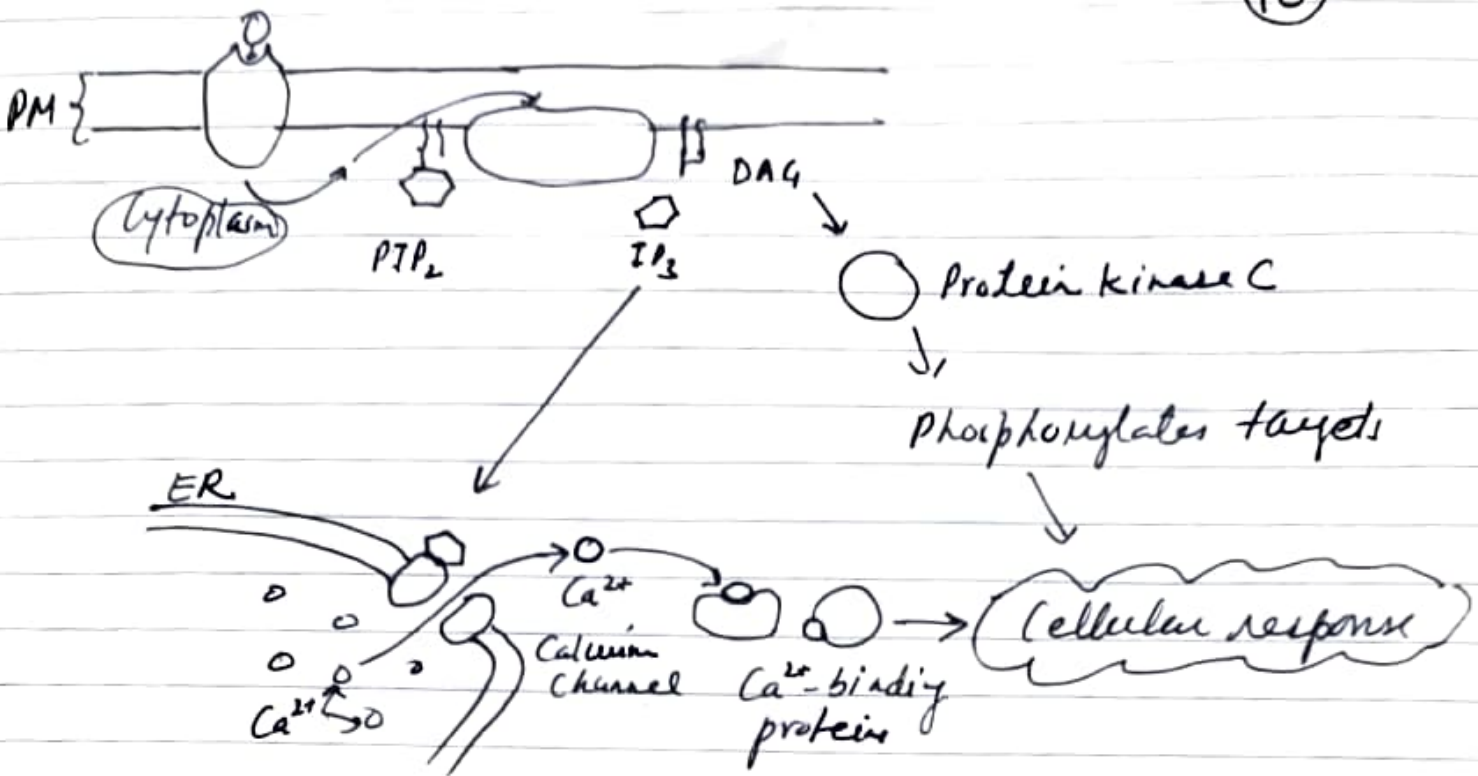 PM
Cytoplasm
PIP₂
IP₃
DAG
Protein kinase C
Phosphorylates targets
ER
Ca²⁺
Ca²⁺
Calcium
Channel
Ca²⁺-binding
proteins
Cellular response